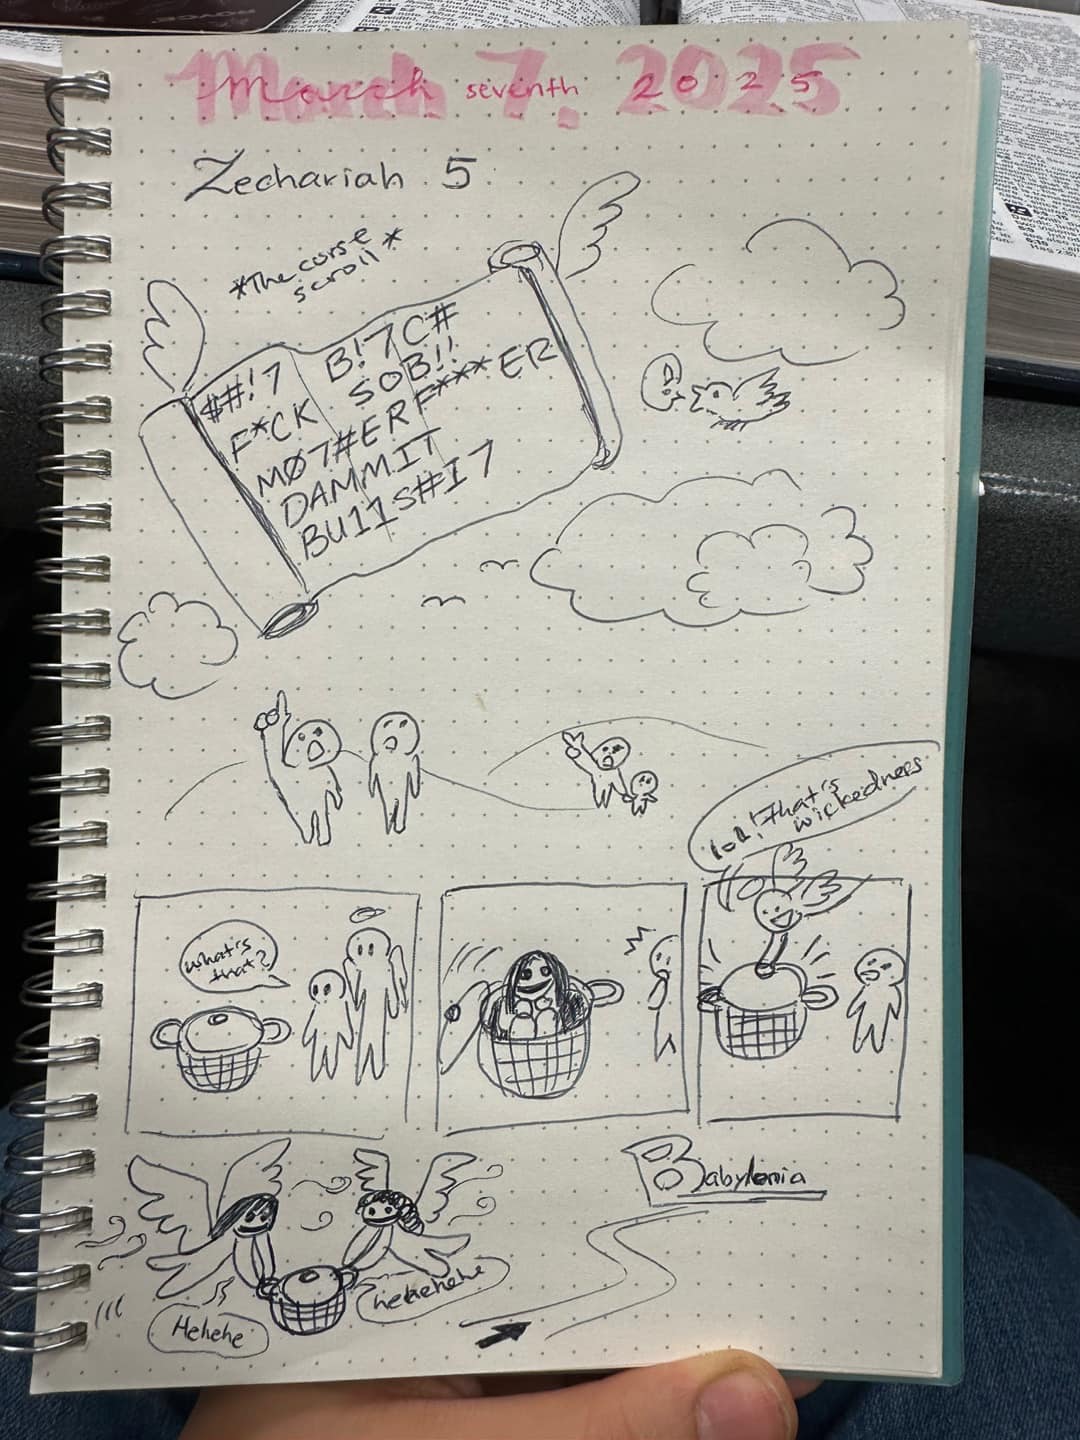 March 7, 2025
March seventh 2025
Zechariah 5
*The curse
scroll*
$#!7 B!7C#
F*CK SOB!!
MØ7#ERF***ER
DAMMIT
BU11S#I7
!
lol! that's
wickedness
what's
that?
Babylonia
Hehehe
hehehehe